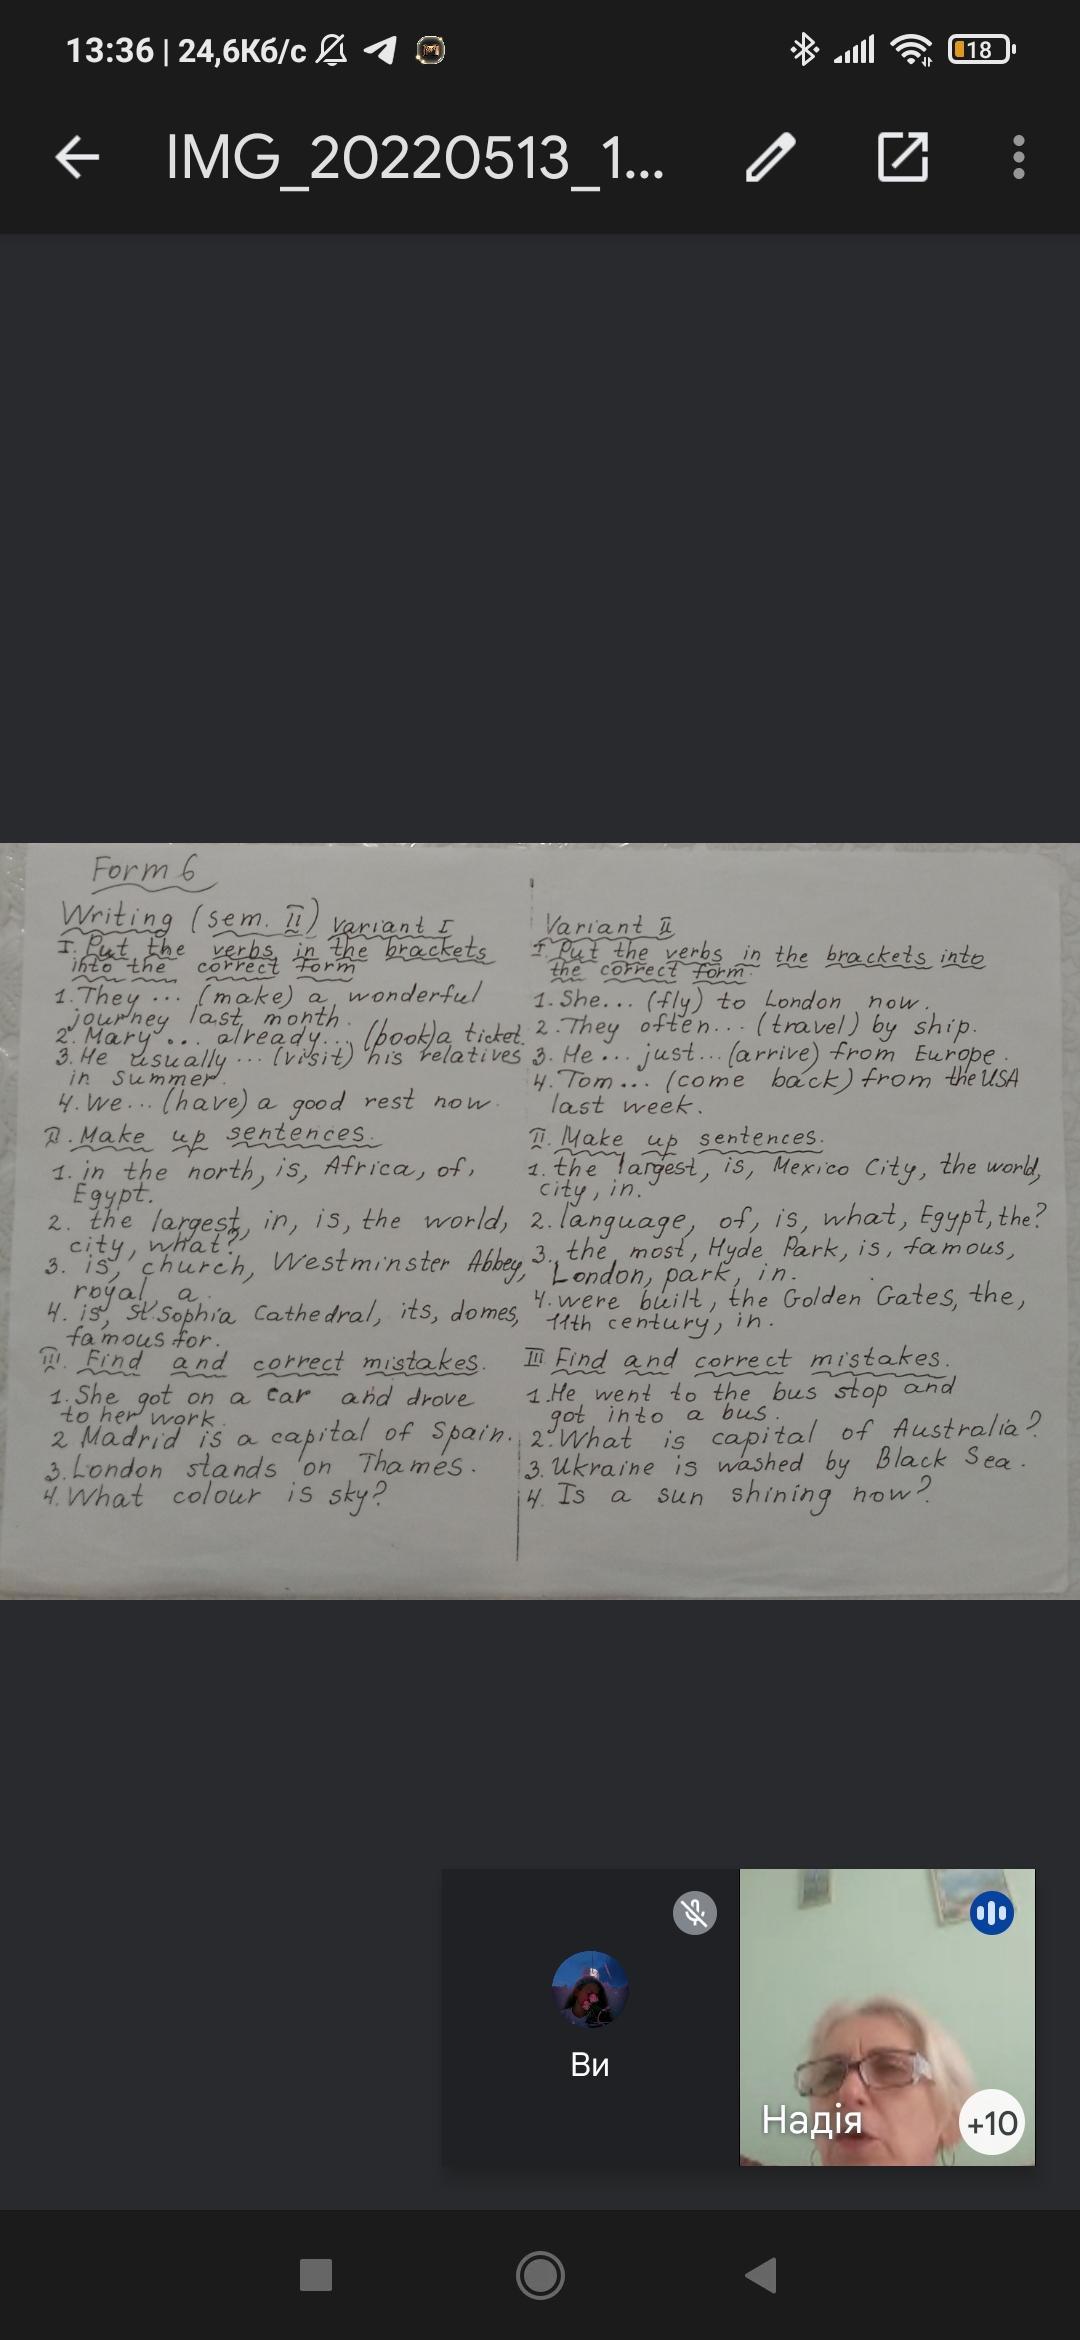 13:36 | 24,6Кб/с
18
IMG_20220513_1...
Form 6
Writing (sem. II) Variant I
I. Put the verbs in the brackets
into the correct form
1. They ... (make) a wonderful
journey last month.
2. Mary ... already ... (book) a ticket.
3. He usually ... (visit) his relatives
in summer.
4. We ... (have) a good rest now.
II. Make up sentences.
1. in the north, is, Africa, of,
Egypt.
2. the largest, in, is, the world,
city, what?
3. is, church, Westminster Abbey,
royal, a.
4. is, St. Sophia Cathedral, its, domes,
famous for.
III. Find and correct mistakes.
1. She got on a car and drove
to her work.
2 Madrid is a capital of Spain.
3. London stands on Thames.
4. What colour is sky?
Variant II
I. Put the verbs in the brackets into
the correct form.
1. She ... (fly) to London now.
2. They often ... (travel) by ship.
3. He ... just ... (arrive) from Europe.
4. Tom ... (come back) from the USA
last week.
II. Make up sentences.
1. the largest, is, Mexico City, the world,
city, in.
2. language, of, is, what, Egypt, the?
3. the most, Hyde Park, is, famous,
London, park, in.
4. were built, the Golden Gates, the,
11th century, in.
III Find and correct mistakes.
1. He went to the bus stop and
got into a bus.
2. What is capital of Australia?
3. Ukraine is washed by Black Sea.
4. Is a sun shining now?
Ви
Надія
+10